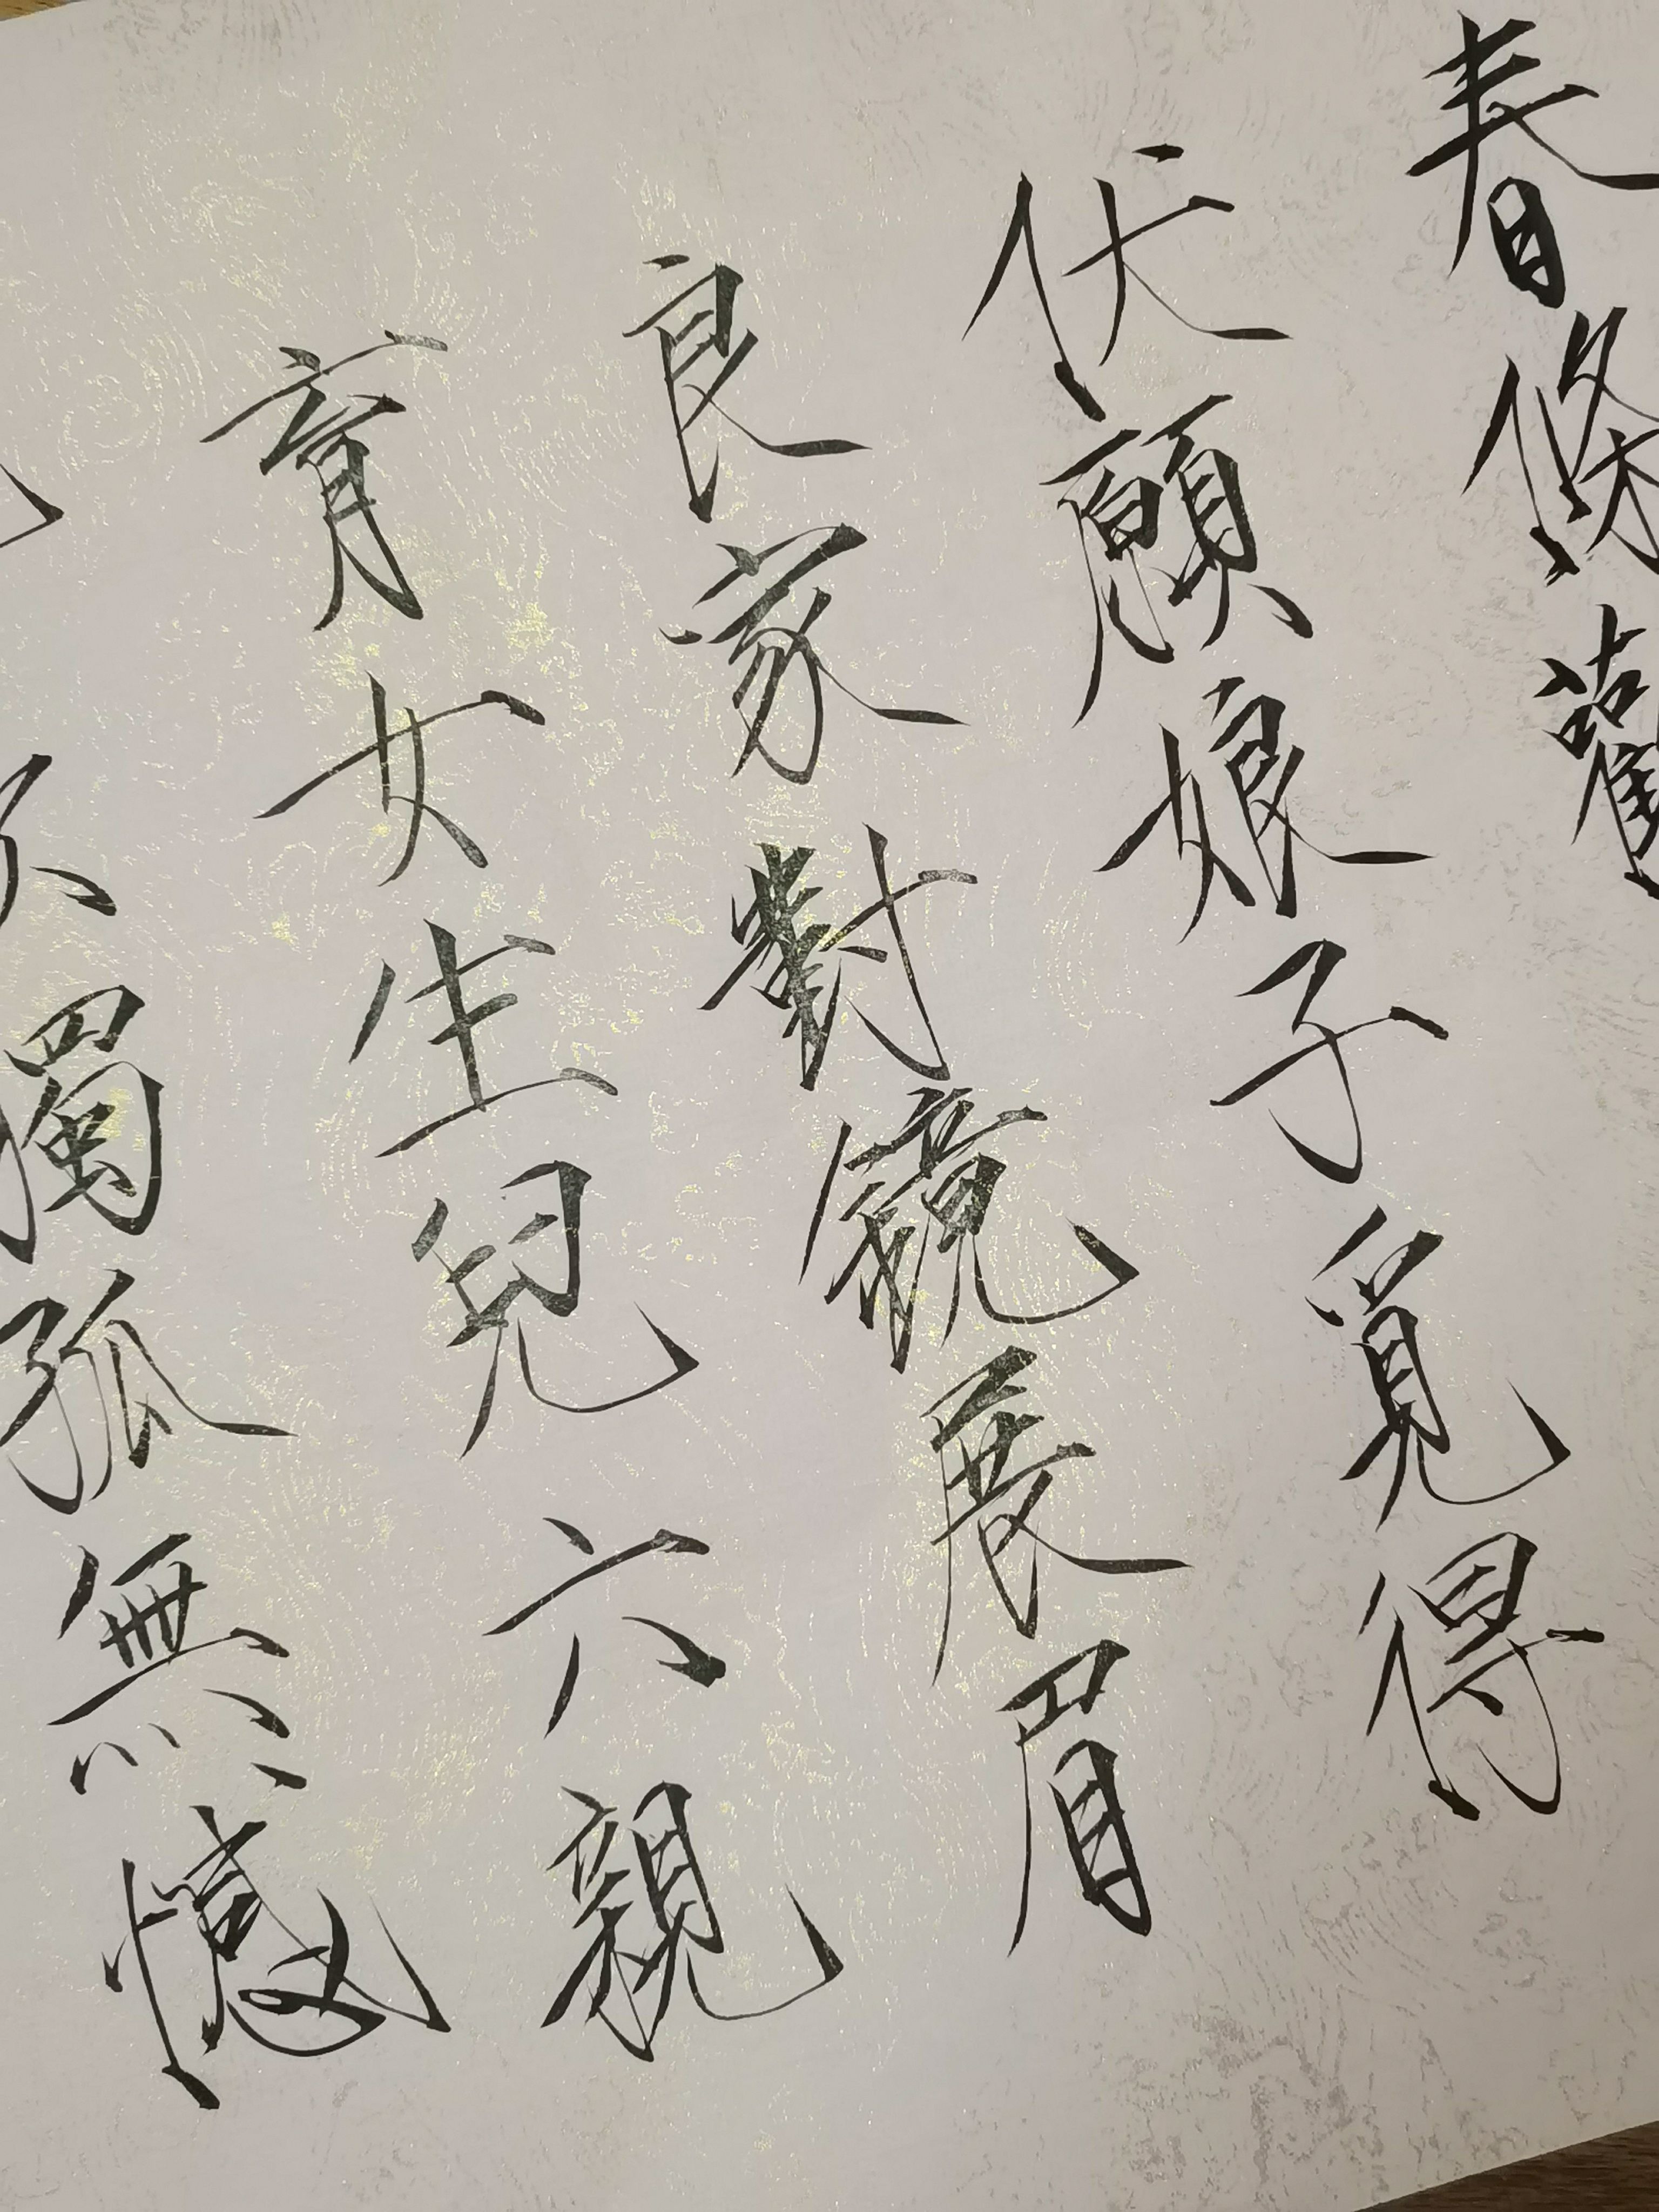 春條勸
伏願娘子覓得
良家對鏡展眉
育女生兒六親
不獨孤無憾